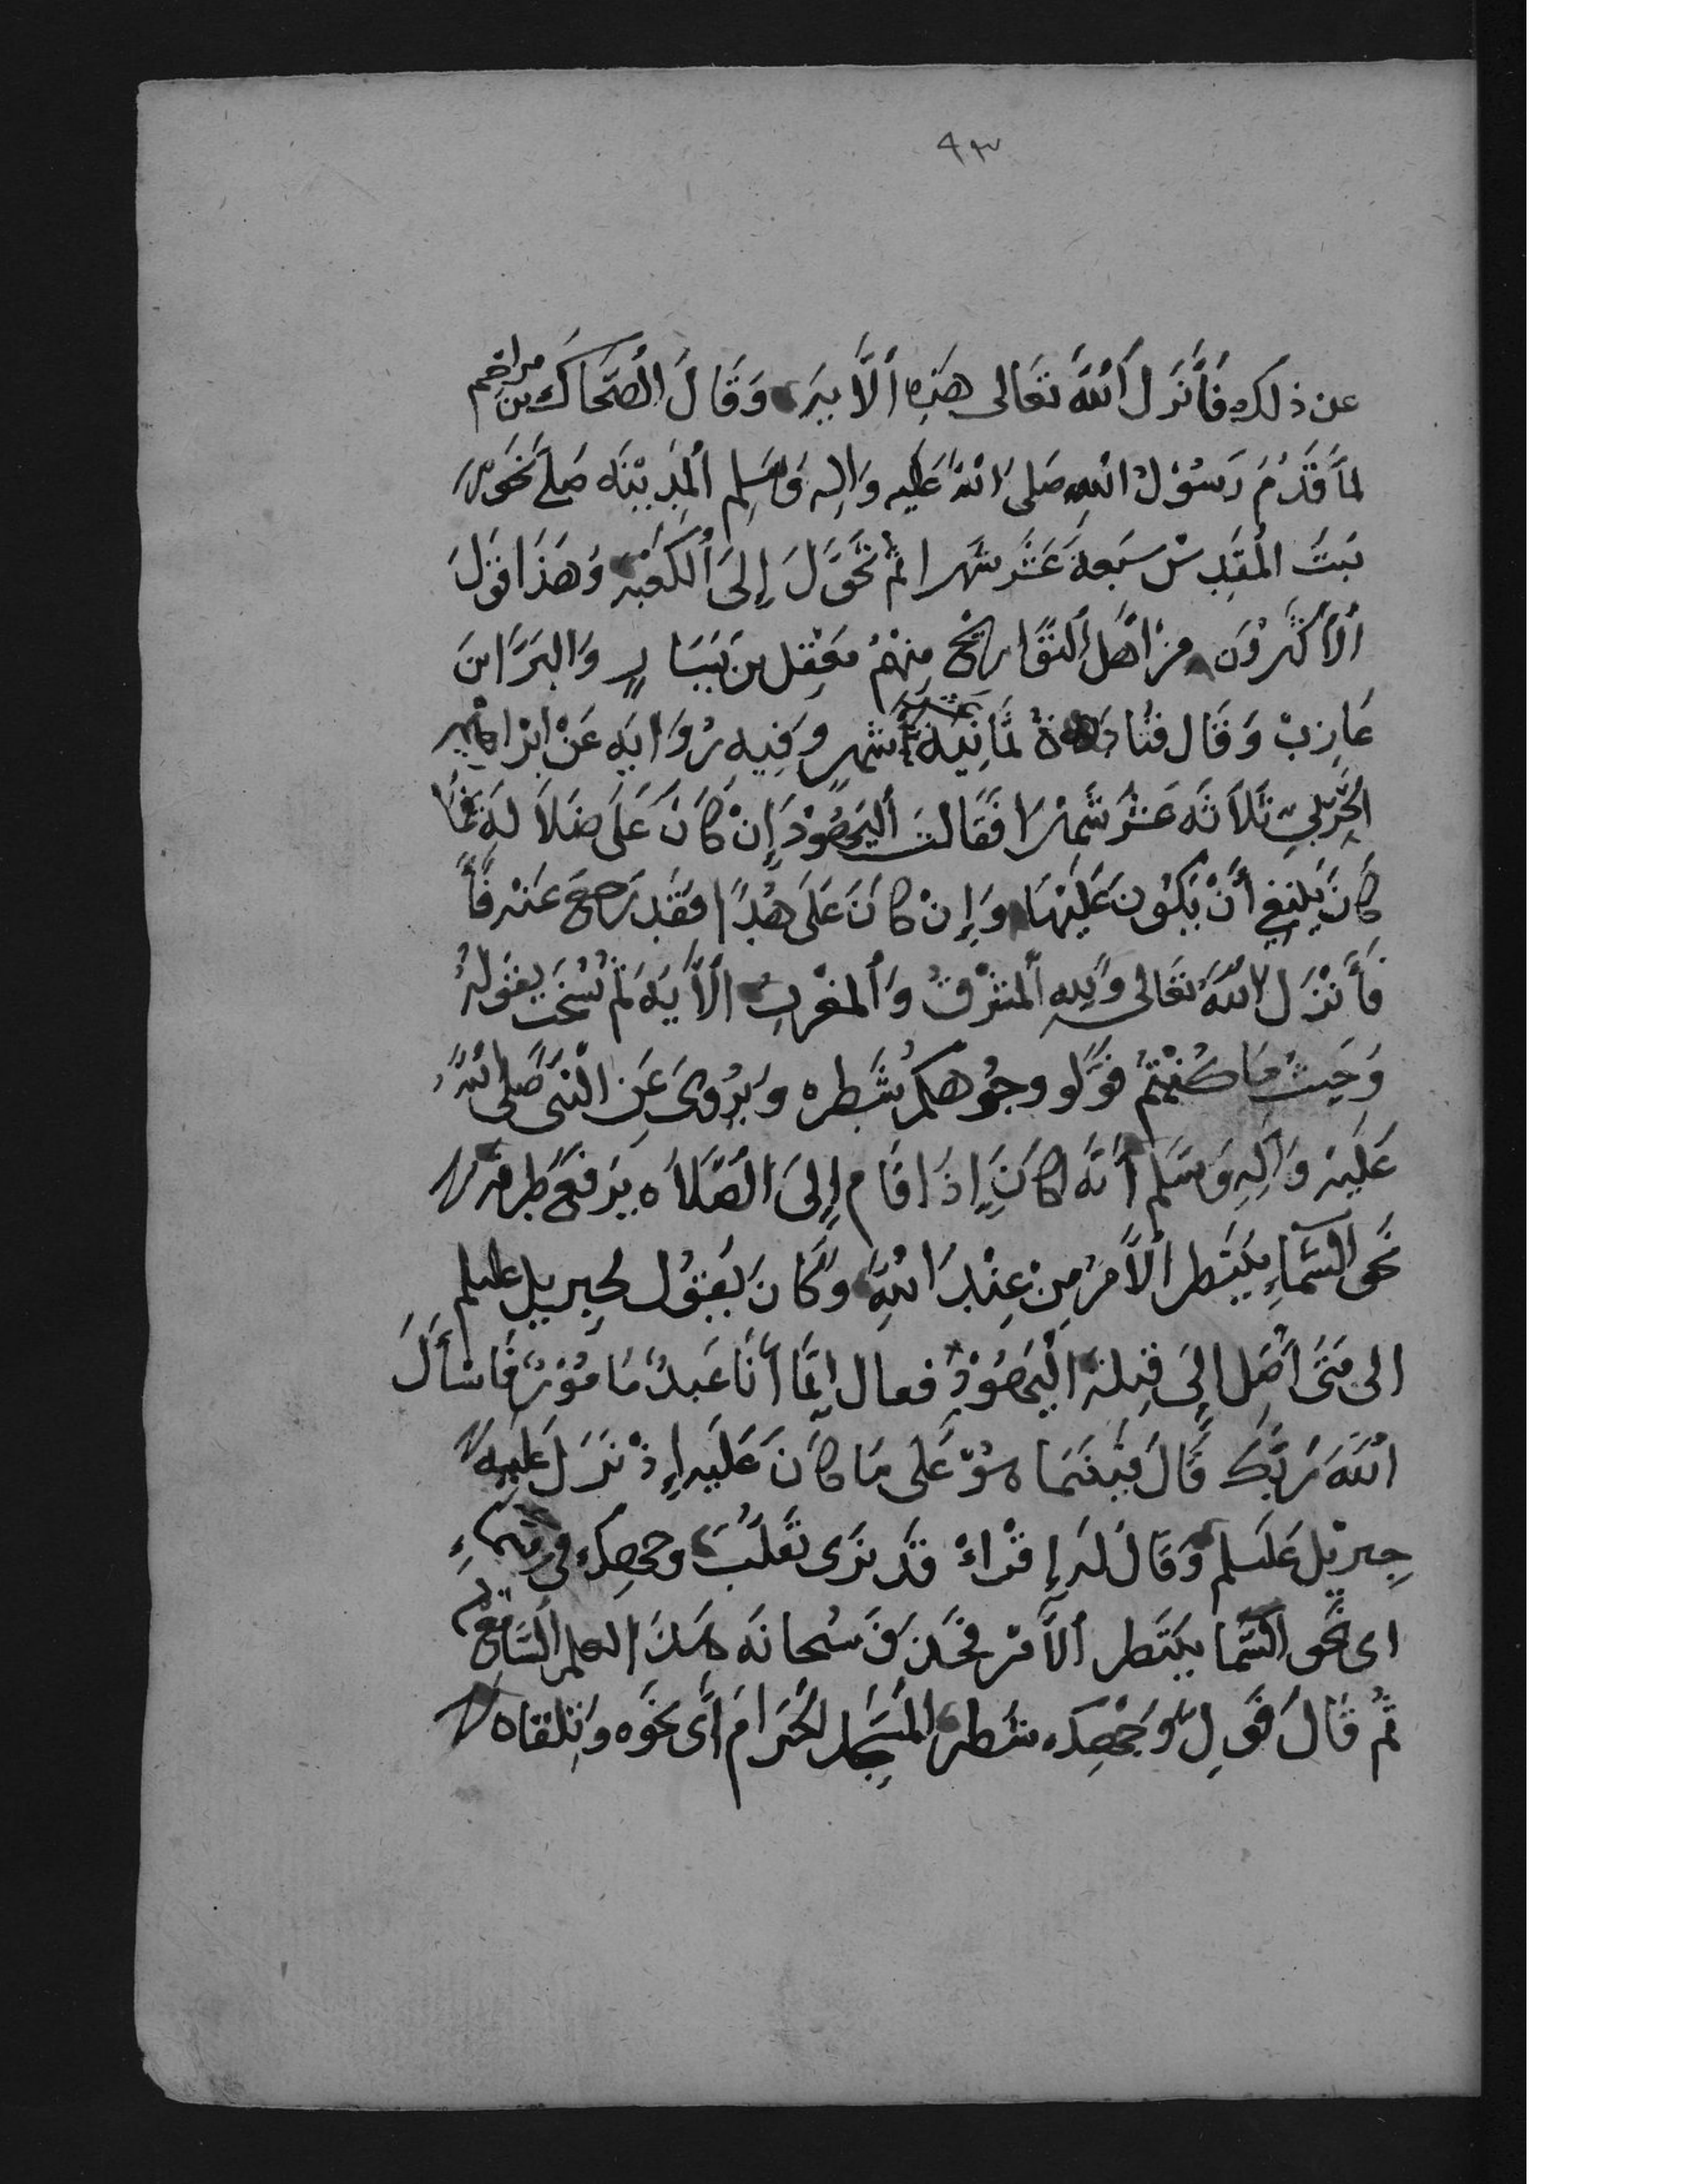 ٩٣
عن ذلك فَأَنْزَلَ اللَّهُ تعَالى هَذِهِ الآيَه وَقَالَ الضَّحَّاكُ بن مزاحم
لمَّا قَدِمَ رَسُوْلُ اللهِ صَلى اللهُ عَليه وَالِهِ وَسَلم اَلمَدِيْنَه صَلَّى نَحَوَ
بَيتَ المَقدِسْ سَبعةَ عَشَر شهرا ثم تَحَوَّلَ إِلىَ اَلكَعْبَه وَهَذَا قَولَ
اَلأَكثَروُنَ من اهَل اَلتوَاريْخ مِنْهُمْ مَعْقِل بن يَسَارٍ وَالبَرَّا ابن
عَازِبْ وَقَال قتَادَة ثمَانِيَة عشر شهر وَفِيهِ رُوَايَه عَنْ ابْرَاهِيم
الحَرْبيِ ثلاَثه عَشر شَهْرَا فقَالتَ اَليَهُوْد إِنْ كَانَ عَلَى ضَلاَلَه فمَا
كَانَ يَنبَغِي أَنْ يَكُونَ عَليْهَا وَإِنْ كَانَ عَلَى هُدًا فقَد رَجعَ عَنْه فَأَ
فَأَنْزَلَ اللَّهُ تعَالى وَلِلهِ اَلمَشْرِقُ وَاَلمَغْرِبُ الآَيَه ثم نُسْخَت بِقَولِهُ
وَحَيثُ مَا كُنْتُمْ فَوَلُّو وجُوُهكمُ شَطره وَيرُوىَ عَنِ النَّبي صَلى اللهُ
عَلَيْه وَآلِهِ وَسَلم أَنَّه كَانَ إِذَا قَام إِلىَ الصَّلاَه يَرفَعُ طَرفَه
نحَو السَّمَاءِ يَنتَظر اَلأَمرُ مِنْ عِنْدِ اللَّه وَكَانَ يَقوُل لجِبريل عليلم
الى مَتَى أُصَل إِلىَ قِبلة اَليَهُوْدِ فعال إِنمَّا أَنَا عَبدٌ مَامُوْرٌ فَاسْأَلَ
اللَّهَ رَبَّكَ قَالَ فبَينَمَا هوَ عَلَى مَا كاَنَ عَلَيه إِذْ نَزَلَ عَليه
جِبرِيْل عَليلم وَقَالَ لَه إِقْرَاءْ قَد نَرَى تقَلُّبَ وجهِكَ في السماءِ
اى نحَو السَّمَا يَنتَظر اَلأَمْر فحَذفَ سُبحانَه هَذَا لعلم السَّامِعُ
ثمُ قَالَ فَوَلِ وَجْهِكَ شَطر المَسْجِد الحَرَامَ أَى نحَوه وَتِلقاه